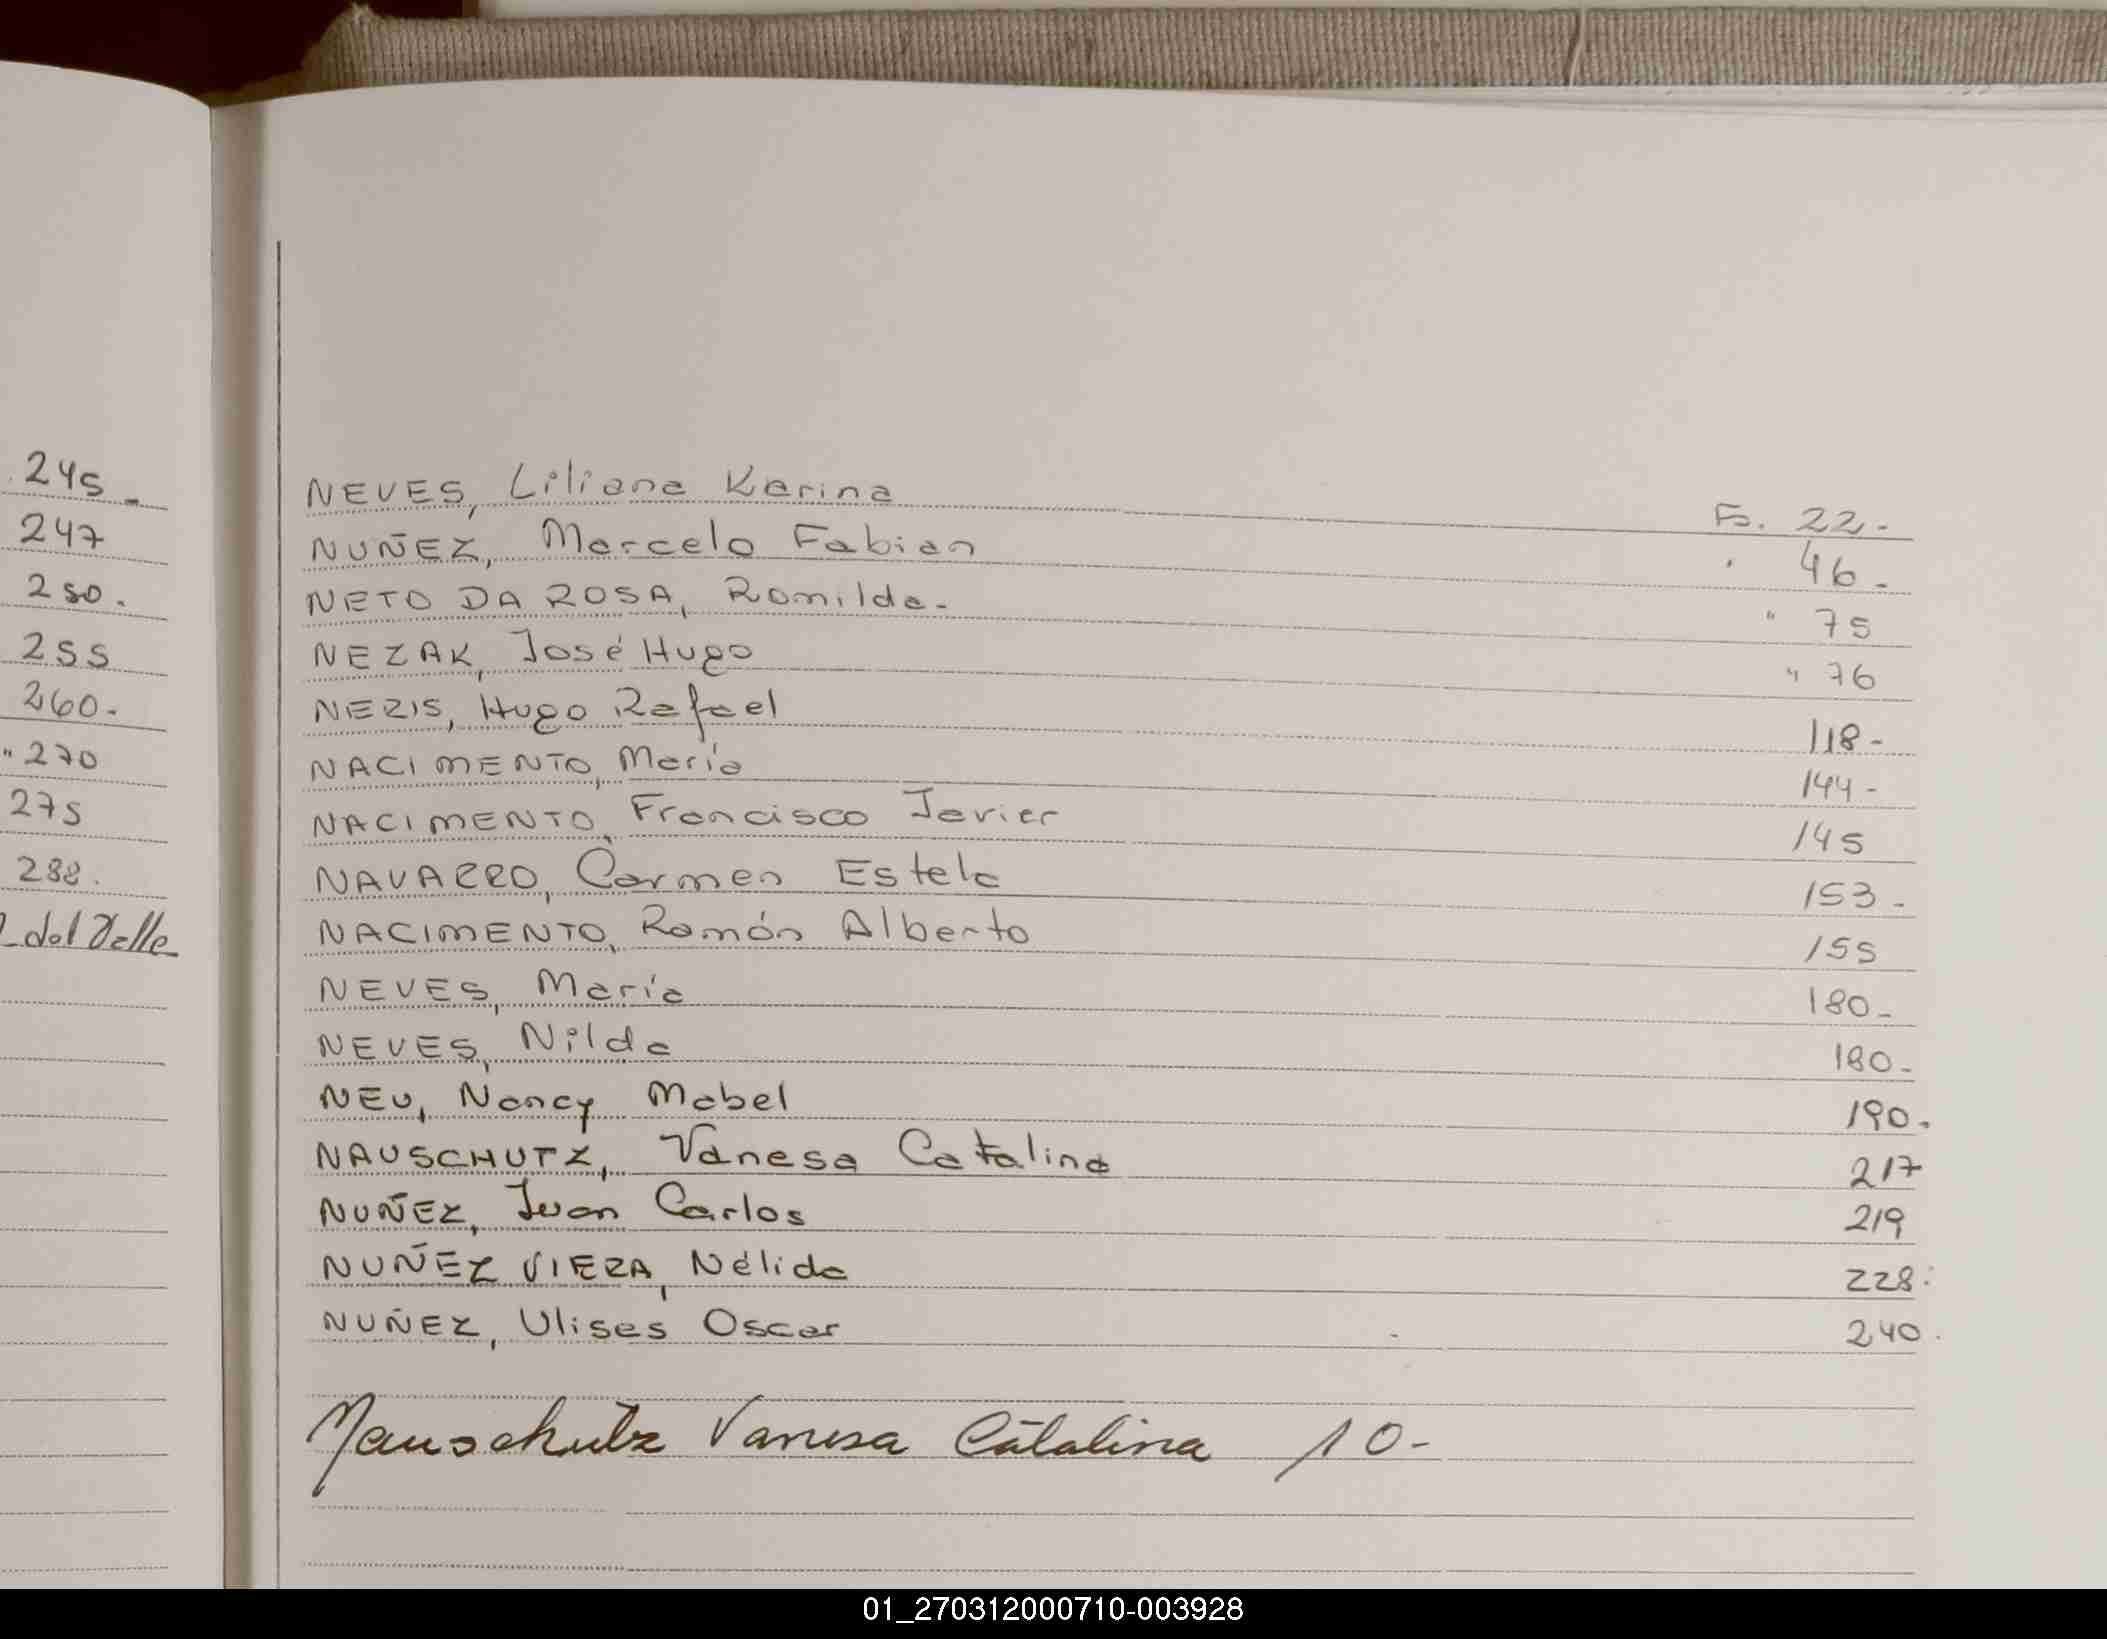 245-
247
250.
255
260-
" 270
275
288.
del Valle
NEVES, Liliana Karina Fo. 22-
NUÑEZ, Marcelo Fabian " 46-
NETO DA ROSA, Romilda- " 75
NEZAK, José Hugo " 76
NERIS, Hugo Rafael 118-
NACIMENTO, María 144-
NACIMENTO, Francisco Javier 145
NAVARRO, Carmen Estela 153-
NACIMENTO, Ramón Alberto 155
NEVES, María 180-
NEVES, Nilda 180-
NEU, Nancy Mabel 190.
NAUSCHUTZ, Vanesa Catalina 217
NUÑEZ, Juan Carlos 219
NUÑEZ VIERA, Nélida 228.
NUÑEZ, Ulises Oscar 240.
Nauschutz Vanesa Catalina 10-
01_270312000710-003928